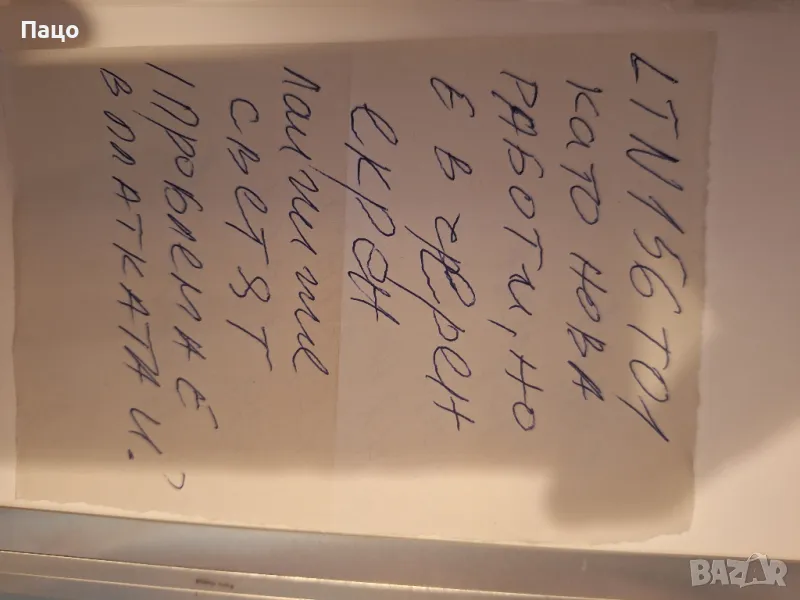 Пацо
LTN156T01
като нова
РАБОТи, но
Е в черен
екран
лампите
светят
/ПРОБЛЕМА Е
В ПЛАТКАТА И.?
BAZAR